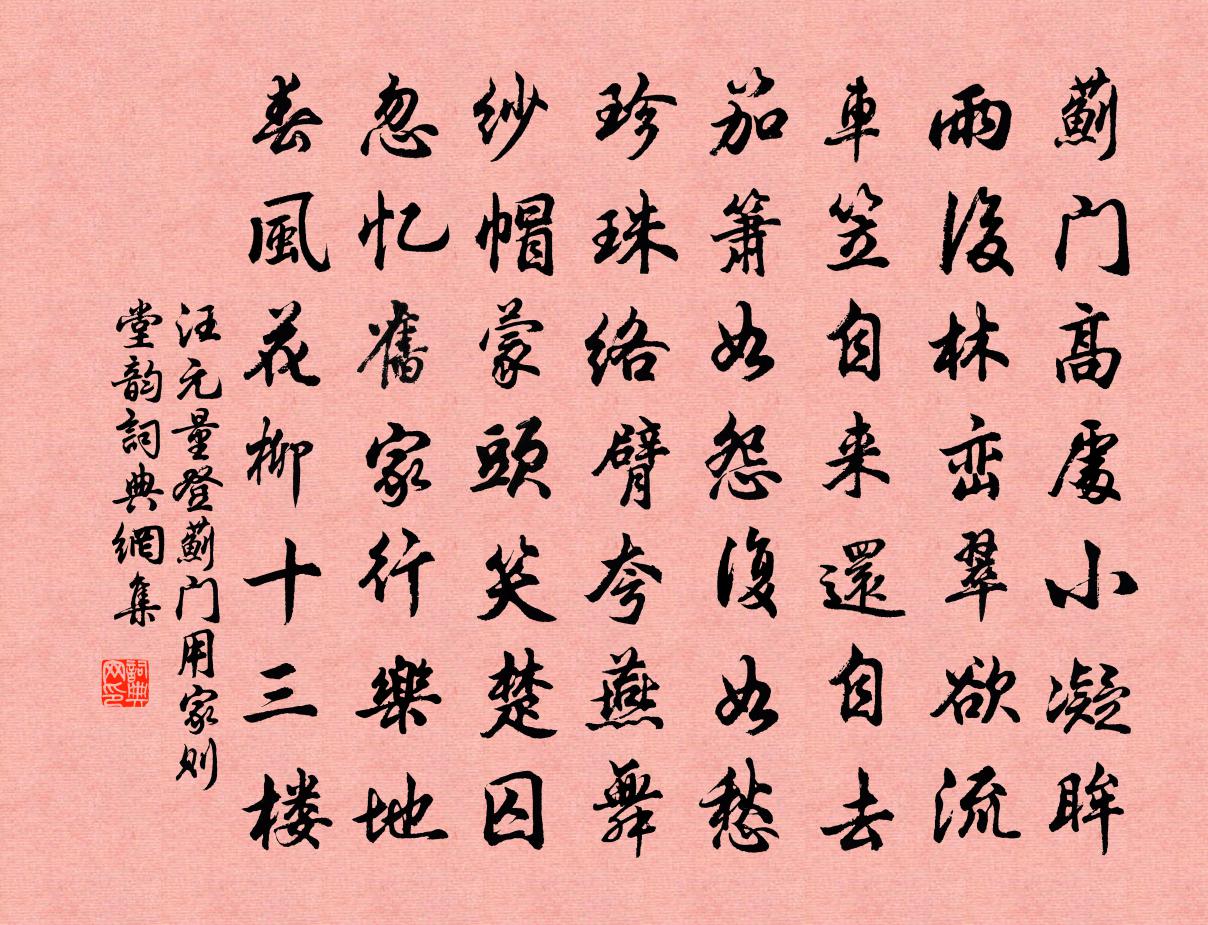 蓟门高處小凝眸
雨後林峦翠欲流
車笠自来還自去
笳箫如怨復如愁
珍珠络臂夸燕舞
纱帽蒙頭笑楚囚
忽忆舊家行樂地
春風花柳十三楼
汪元量登蓟门用家则
堂韵詞典網集
詞典网印